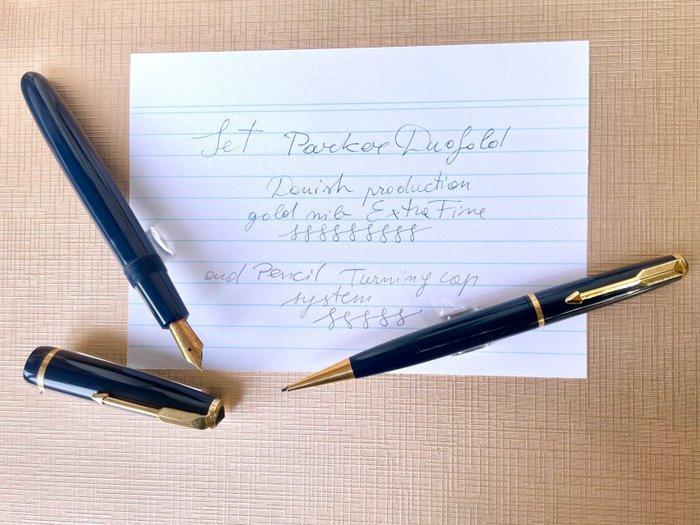 Set Parker Duofold
Danish production
gold nib Extra Fine
and Pencil Turning cap
system